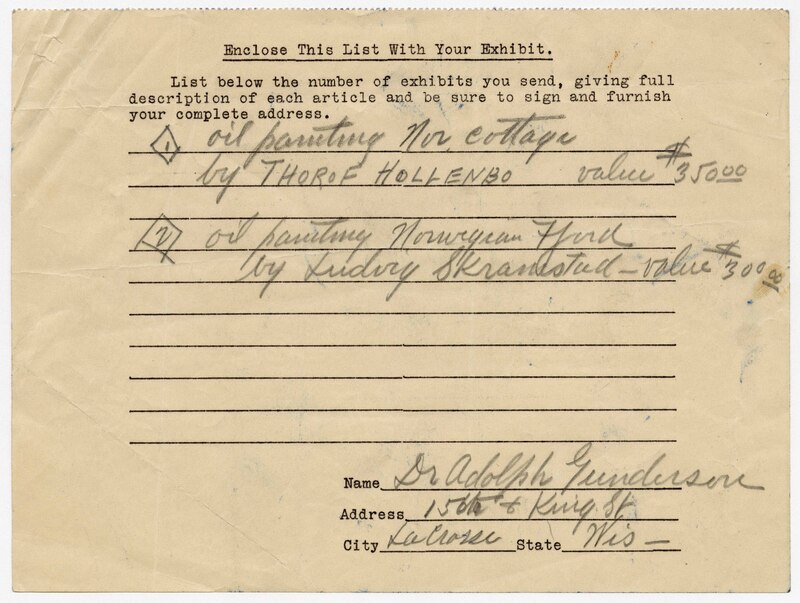 Enclose This List With Your Exhibit.
List below the number of exhibits you send, giving full
description of each article and be sure to sign and furnish
your complete address.
1 oil painting Nor cottage
by THOROF HOLLENBO value $350.00
2 oil painting Norwegian Fjord
by Ludvig Skramstad - value $300.00
Name Dr Adolph Gunderson
Address 15th + King St
City LaCrosse State Wis -